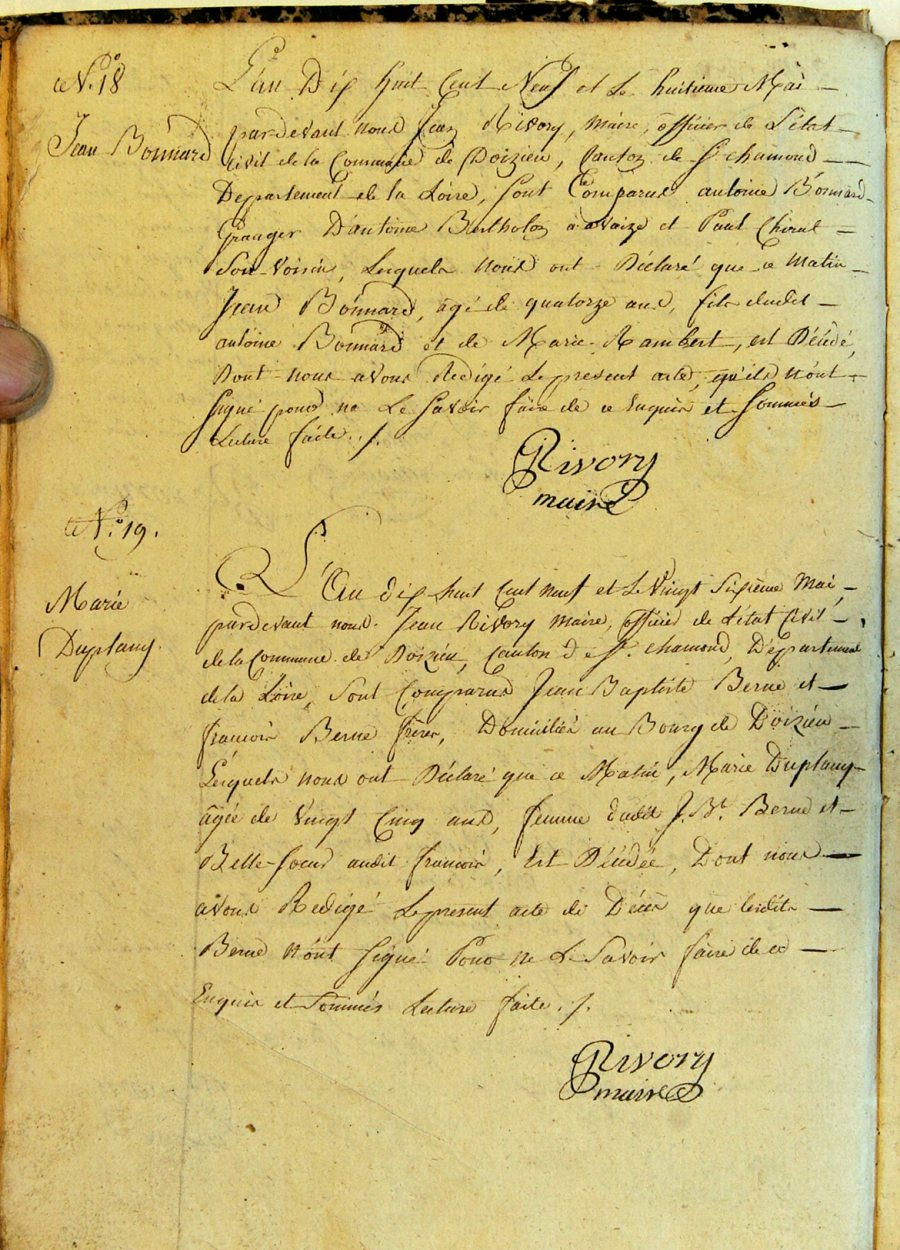 N.° 18
Jean Bonnard
L'an Dix huit Cent Neuf et Le huitieme Mai —
pardevant nous Jean Rivory, maire, officier de L'état —
Civil de la Commune de Doizieu, Canton de St chamond —
Departement de la Loire, sont Comparus antoine Bonnard
Granger D'antoine Bertholon à avaize et Paul Chirat —
Son Voisin, Lesquels Nous ont Déclaré que ce Matin —
Jean Bonnard, agé de quatorze ans, fils dudit —
antoine Bonnard et de Marie Rambert, est Décédé,
Dont nous avons Redigé Le present acte, qu'ils N'ont —
Signé pour ne Le Savoir faire de ce Enquis et Sommés —
Lecture faite ./.
Rivory
maire
N.° 19.
Marie
Duplany
L'An dix huit Cent neuf et Le Vingt Sixième Mai, —
pardevant nous Jean Rivory Maire, officier de L'état Civil —
de la Commune de Doizieu, Canton de St. chamond, Département
de la Loire, Sont Comparus Jean Baptiste Berne et —
francois Berne frères, Domiciliés au Bourg de Doizieu —
Lesquels nous ont Déclaré que ce Matin, Marie Duplany
agée de Vingt Cinq ans, femme dudit J. Bte. Berne et —
Belle-soeur audit francois, Est Décédée, Dont nous —
avons Redigé Le present acte de Décès que lesdits —
Berne N'ont Signé Pour ne Le Savoir faire de ce —
Enquis et Sommés Lecture faite ./.
Rivory
maire